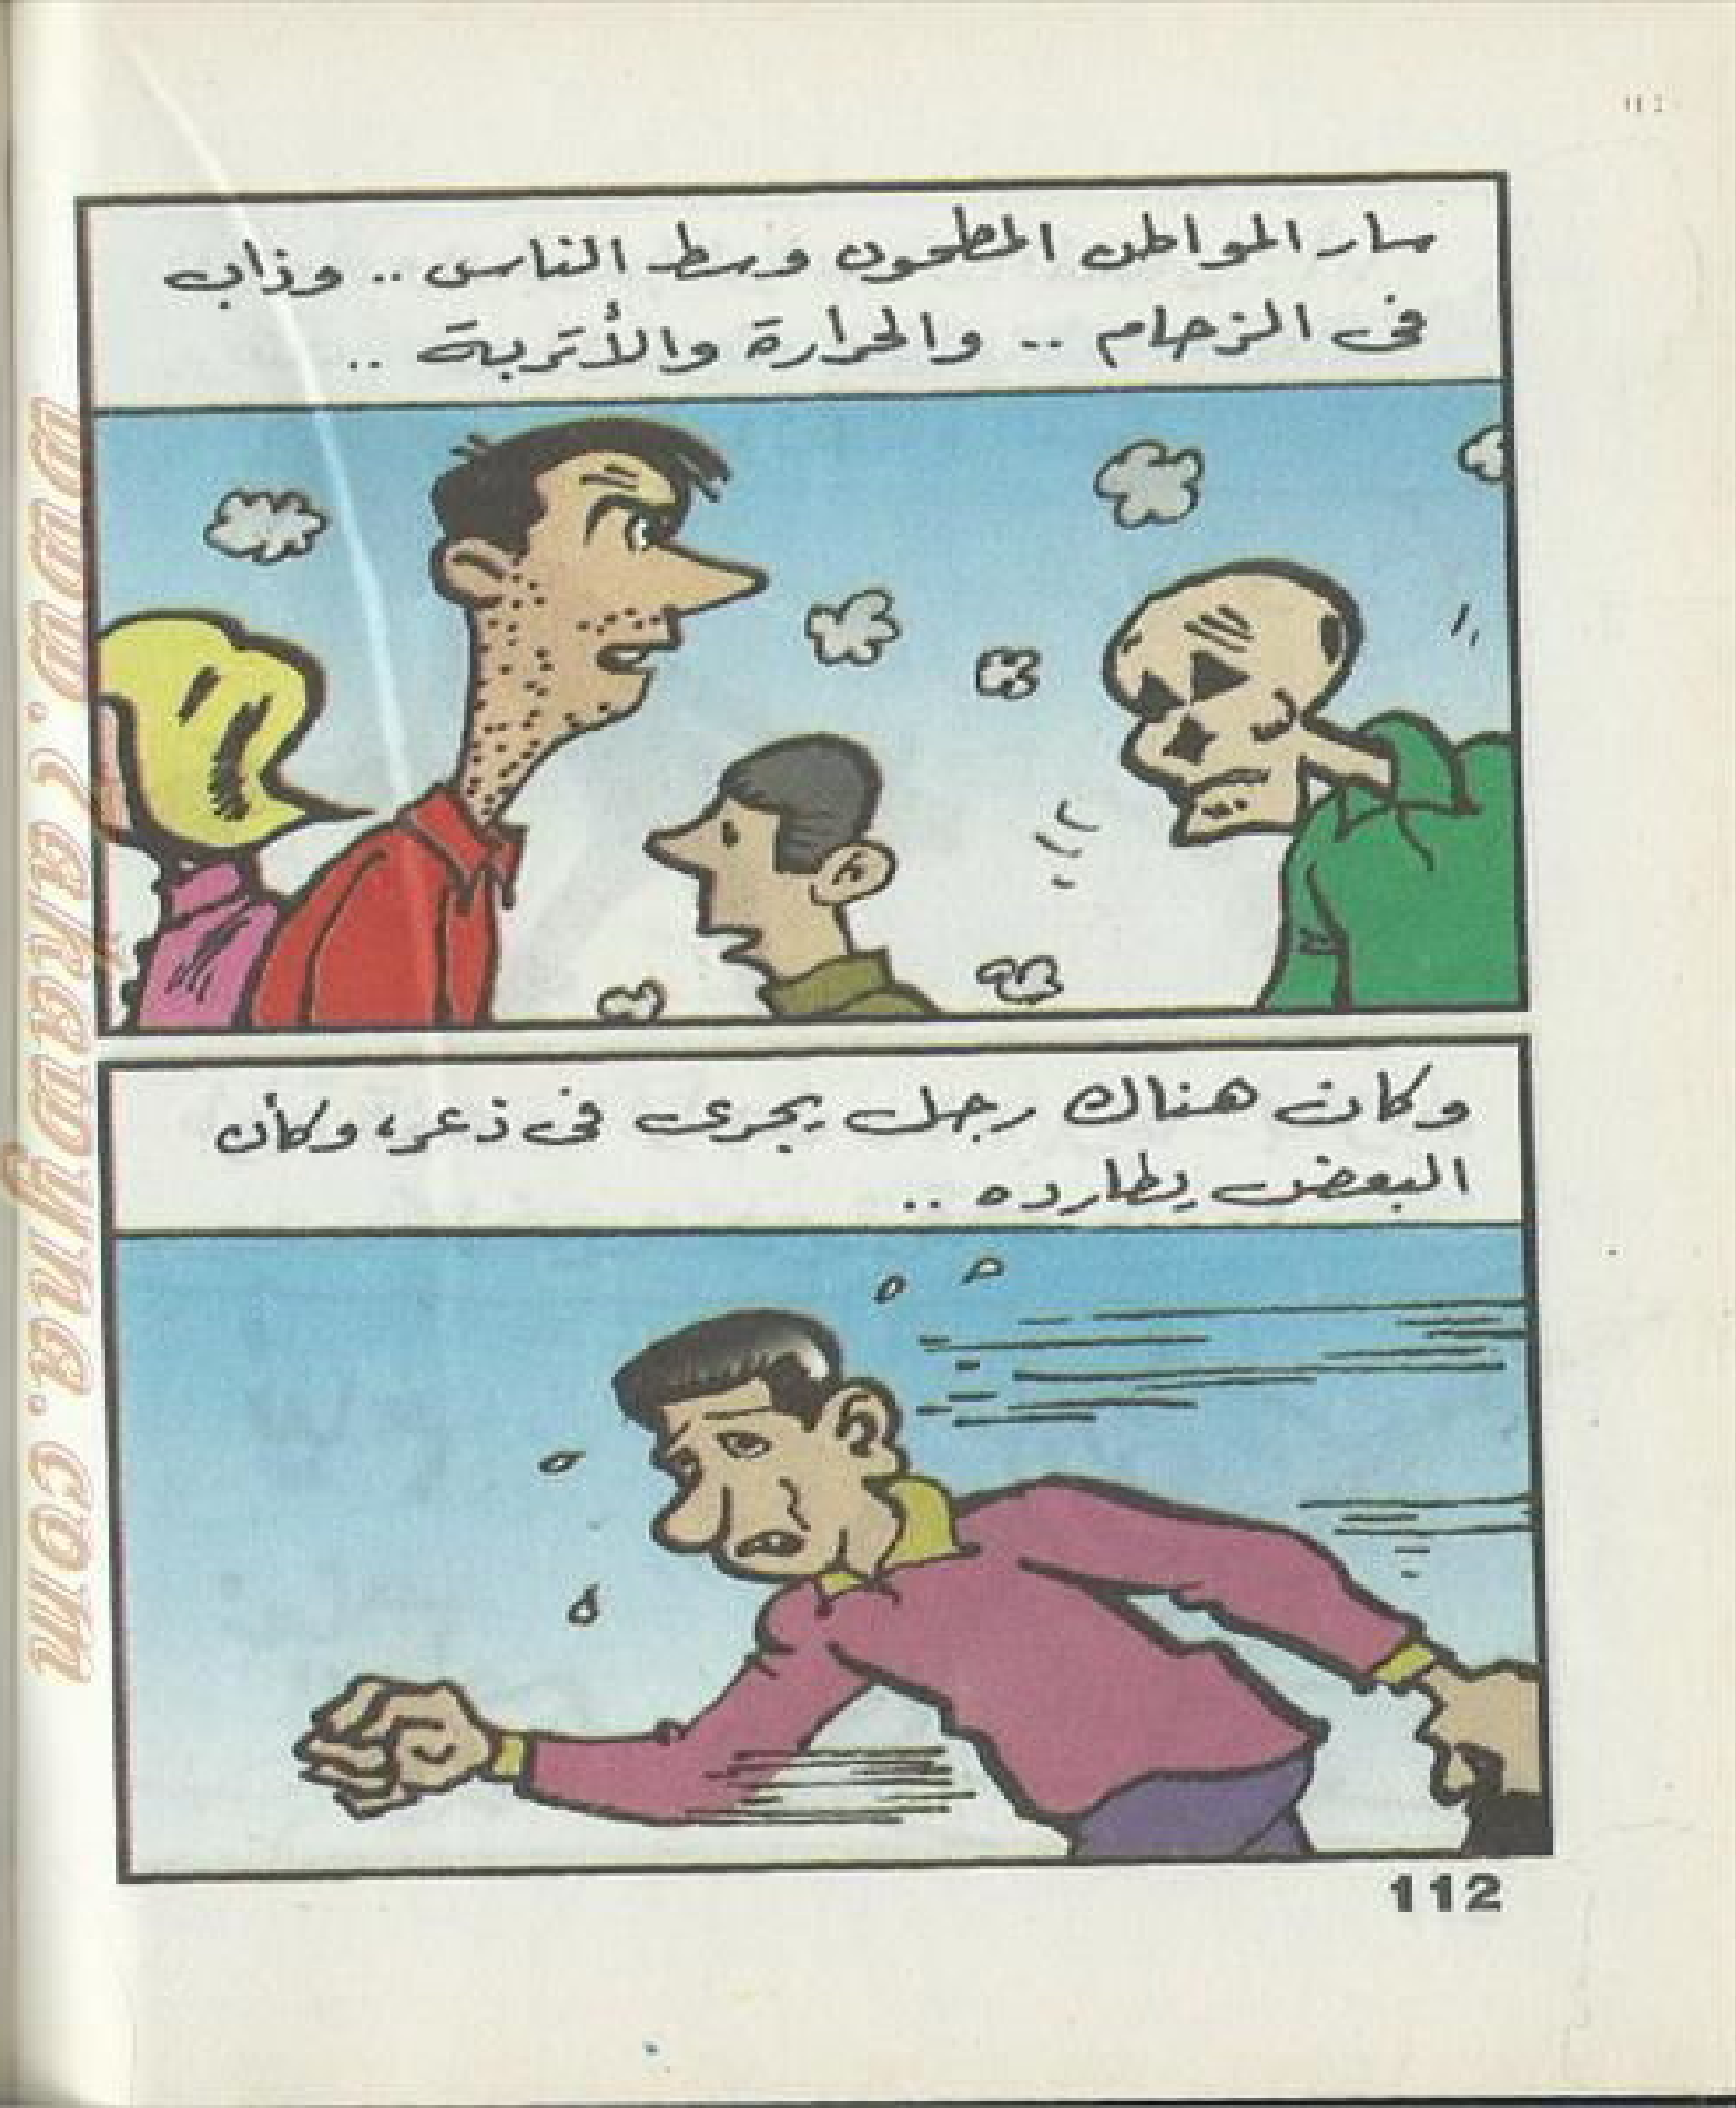 سار المواطن المطحون وسط الناس .. وذاب
فى الزحام .. والحرارة والأتربة ..
وكان هناك رجل يجرى فى ذعر، وكأن
البعض يطارده ..
112